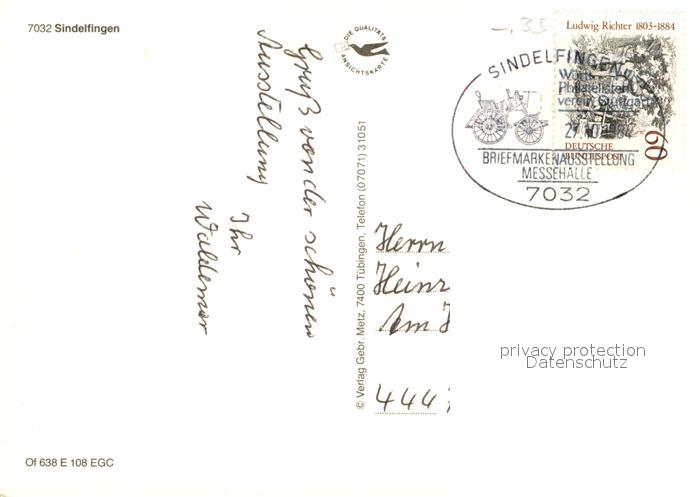 7032 Sindelfingen
DIE QUALITÄTS
ANSICHTSKARTE
-,35
Ludwig Richter 1803-1884
60
DEUTSCHE
BUNDESPOST
SINDELFINGEN
Philatelisten
verein Stuttgart
27.10.1984
BRIEFMARKENAUSSTELLUNG
MESSEHALLE
7032
Gruß von der schönen
Ausstellung
Ihr
Waldemar
© Verlag Gebr. Metz, 7400 Tübingen, Telefon (07071) 31051
Herrn
Heinz
Am
444
privacy protection
Datenschutz
Of 638 E 108 EGC